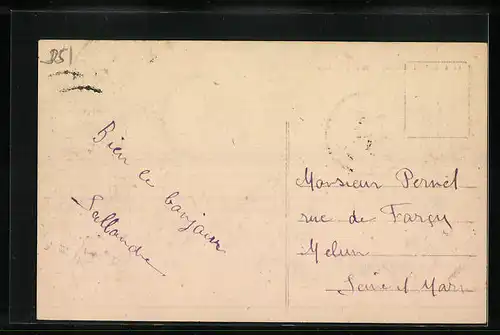 D51
Bien le bonjour
Lallande
Monsieur Pernet
rue de Fargy
Melun
Seine et Marn